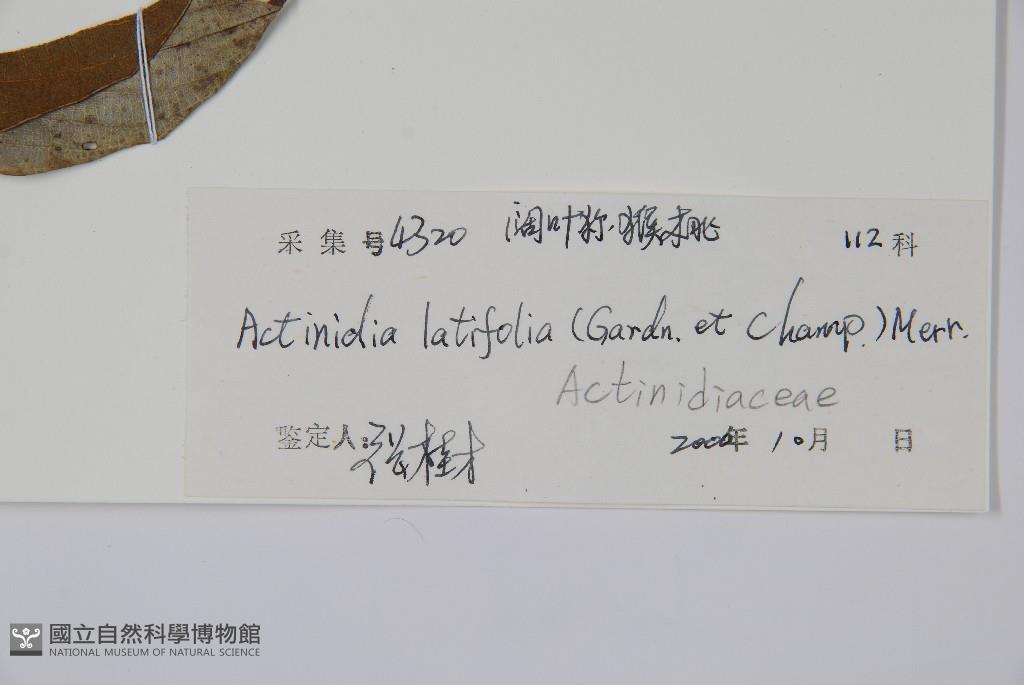 采集号4320 阔叶称.猴桃 112科
Actinidia latifolia (Gardn. et Champ.) Merr.
Actinidiaceae
鉴定人:张桂才 2000年 10月 日
國立自然科學博物館
NATIONAL MUSEUM OF NATURAL SCIENCE